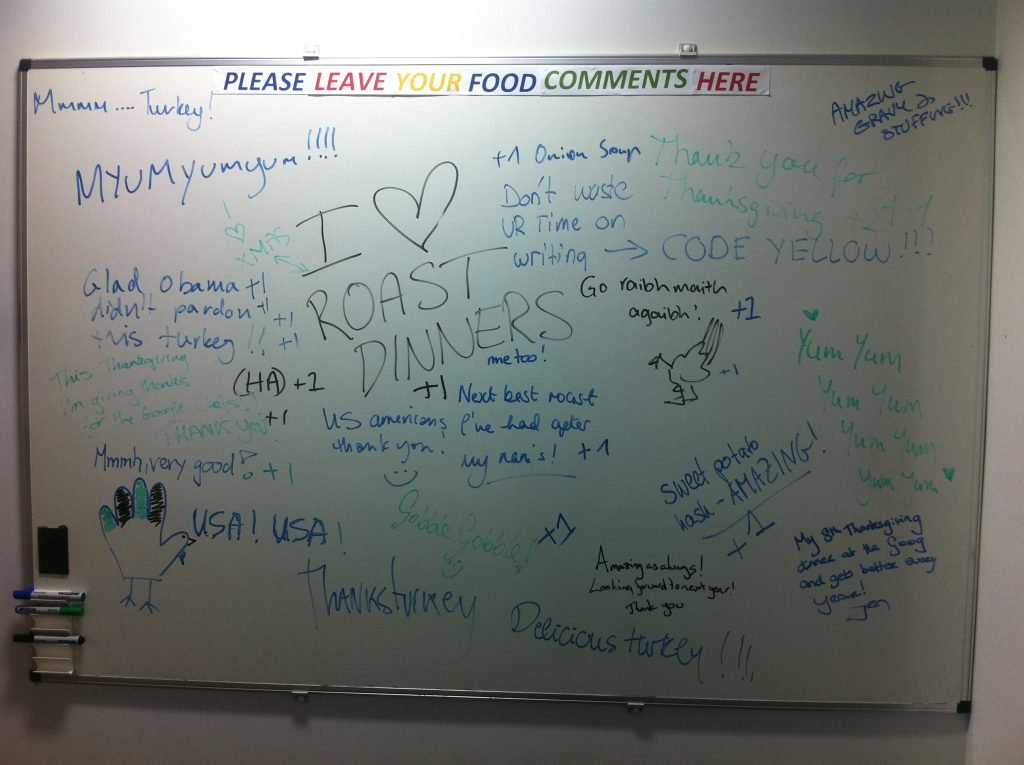 PLEASE LEAVE YOUR FOOD COMMENTS HERE
Mmmm.... Turkey!
AMAZING
GRAVY &
STUFFING!!!
MYUMYumyum!!!!
I ♡
ROAST
DINNERS
me too!
I
♡
XMAS
+1 Onion Soup
Don't waste
UR Time on
writing → CODE YELLOW!!!
Thank you for
Thanksgiving +2 +-1
Glad Obama +1
didn't pardon +1
this turkey!! +1
+1
Go raibh maith
agaibh! +1
+1
This Thanksgiving
I'm giving thanks
for the Google Chefs!
THANK YOU! +1
(HA) +1
US americans
thank you!
+1 Next best roast
I've had after
my nan's! +1
♥
Yum Yum
Yum Yum
Yum Yum
Yum Yum ♥
Mmmh, very good! +1
USA! USA!
Gobble Gobble! +1
sweet potato
hash - AMAZING!
+1
Thanksturkey
Amazing as always!
Looking forward to next year!
Thank you
My 8th Thanksgiving
dinner at the Goog
and gets better every
year!
Jen
Delicious turkey!!!